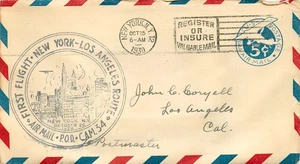 NEW YORK, N.Y.
OCT 15
6-AM
1931
REGISTER
OR
INSURE
VALUABLE MAIL
5¢
AIR MAIL
FIRST FLIGHT · NEW YORK - LOS ANGELES ROUTE
AIR MAIL · P.O.D. · CAM 34
NEW YORK N.Y.
John C. Coryell
Los Angeles
Cal.
Postmaster